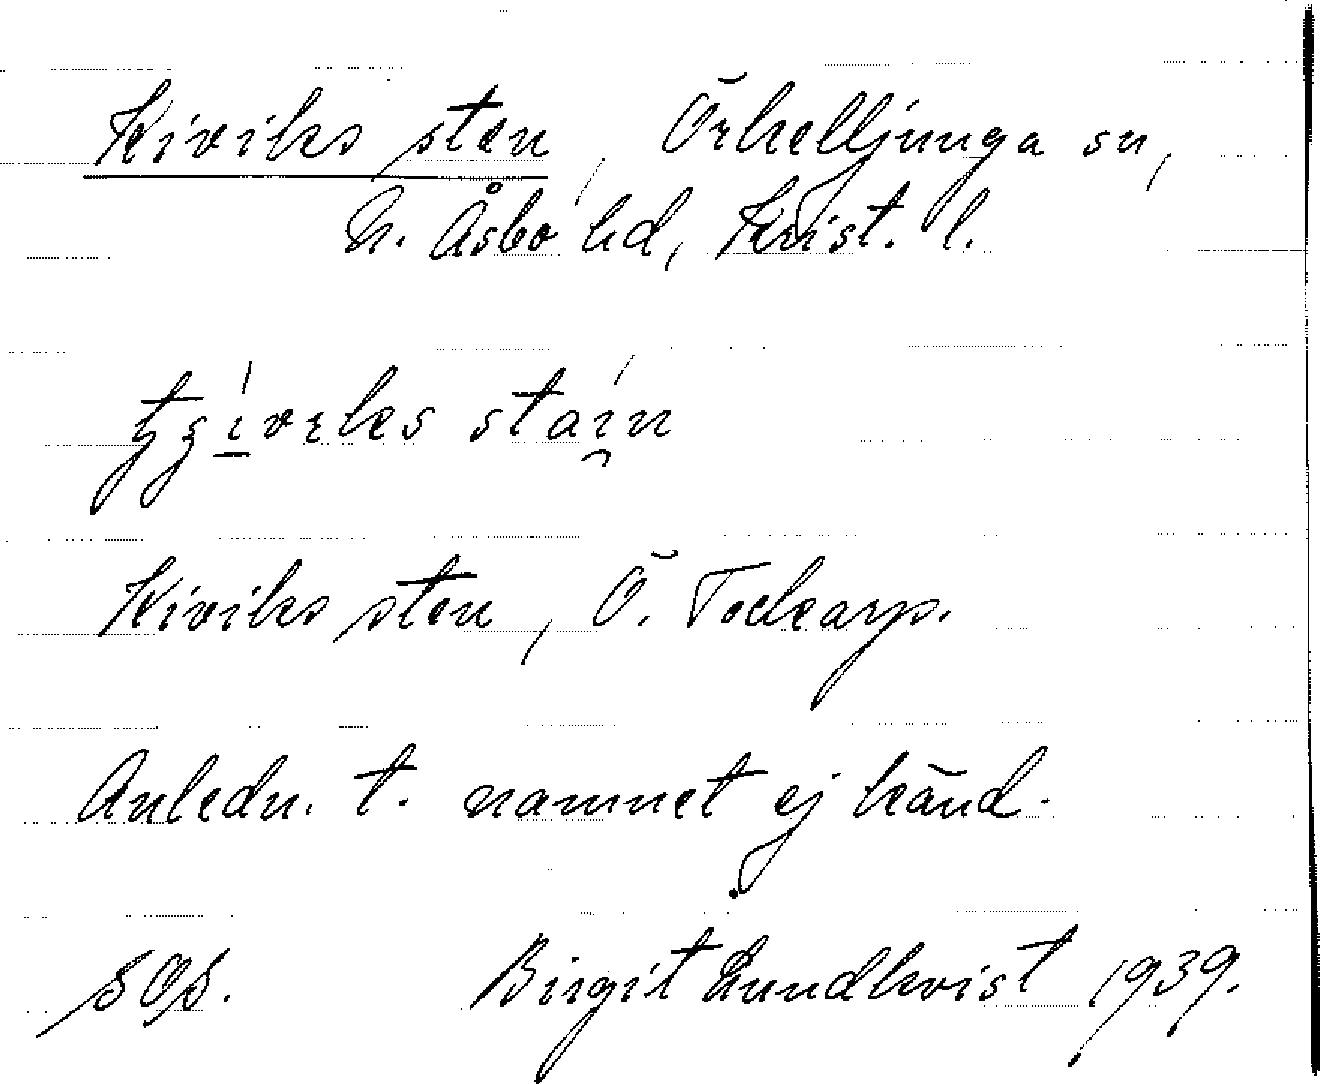 Kiviks sten, Örkelljunga sn,
N. Åsbo hd, Krist. l.
staịn
Kiviks sten, Ö. Tockarp.
Anledn. t. namnet ej känd.
SOS. Birgit Lundkvist 1939.